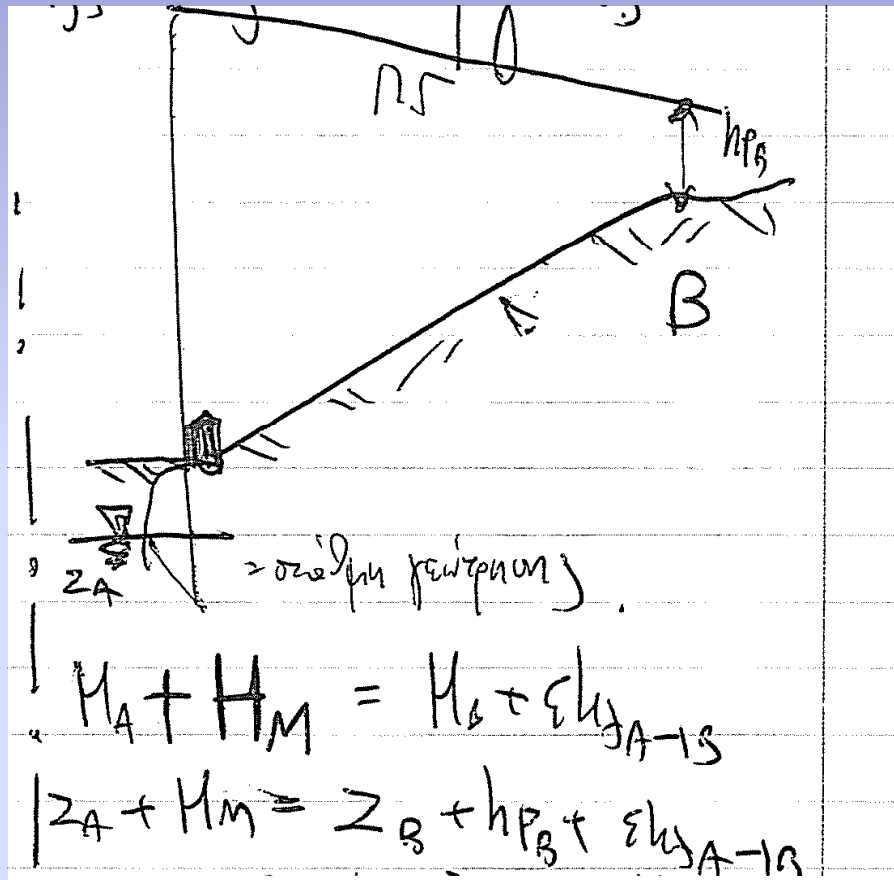 ΠΓ
hpB
B
ZA
= στάθμη γεώτρησης.
HA + HM = HB + Σhf A→B
ZA + HM = ZB + hPB + Σhf A→B